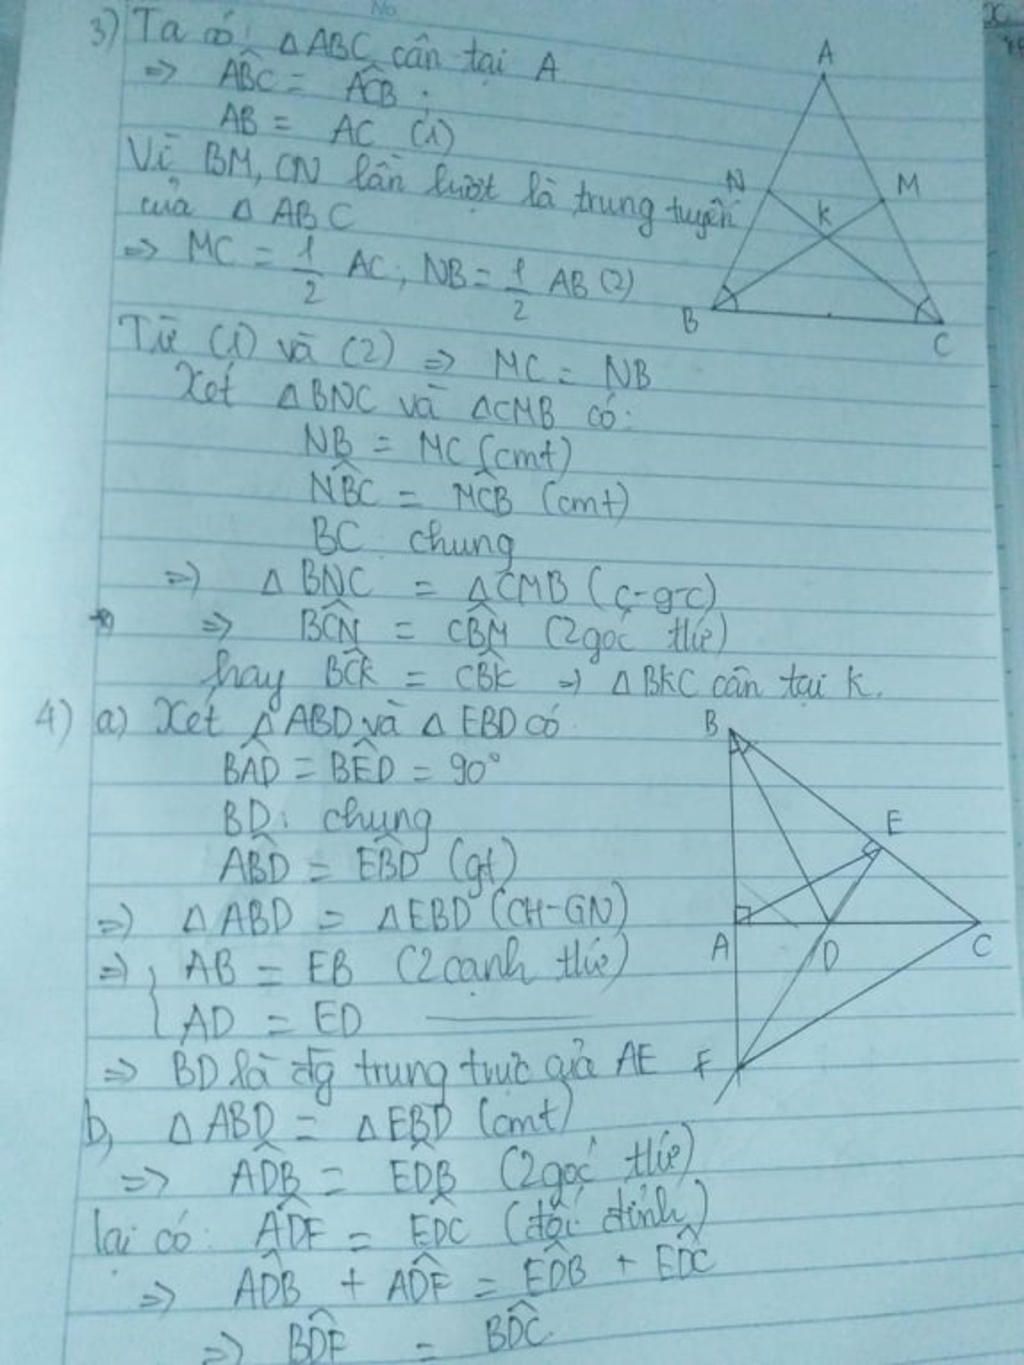 No
3) Ta có: △ABC cân tại A
A
=> ABĈ = AĈB ;
AB = AC (1)
Vì BM, CN lần lượt là trung tuyến
N
M
K
của △ABC
=> MC = 1/2 AC; NB = 1/2 AB (2)
B
C
Từ (1) và (2) => MC = NB
Xét △BNC và △CMB có:
NB = MC (cmt)
NB̂C = MĈB (cmt)
BC chung
=> △BNC = △CMB (c-g-c)
=> BĈN = CB̂M (2 góc t/ứ)
hay BĈK = CB̂K => △BKC cân tại K.
4) a) Xét △ABD và △EBD có
B
BÂD = BÊD = 90°
BD: chung
E
AB̂D = EB̂D (gt)
=> △ABD = △EBD (CH-GN)
A
D
C
=> { AB = EB (2 cạnh t/ứ)
AD = ED ———
=> BD là đg trung trực của AE
F
b, △ABD = △EBD (cmt)
=> AD̂B = ED̂B (2 góc t/ứ)
lại có: AD̂F = ED̂C (đối đỉnh)
=> AD̂B + AD̂F = ED̂B + ED̂C
=> BD̂F = BD̂C